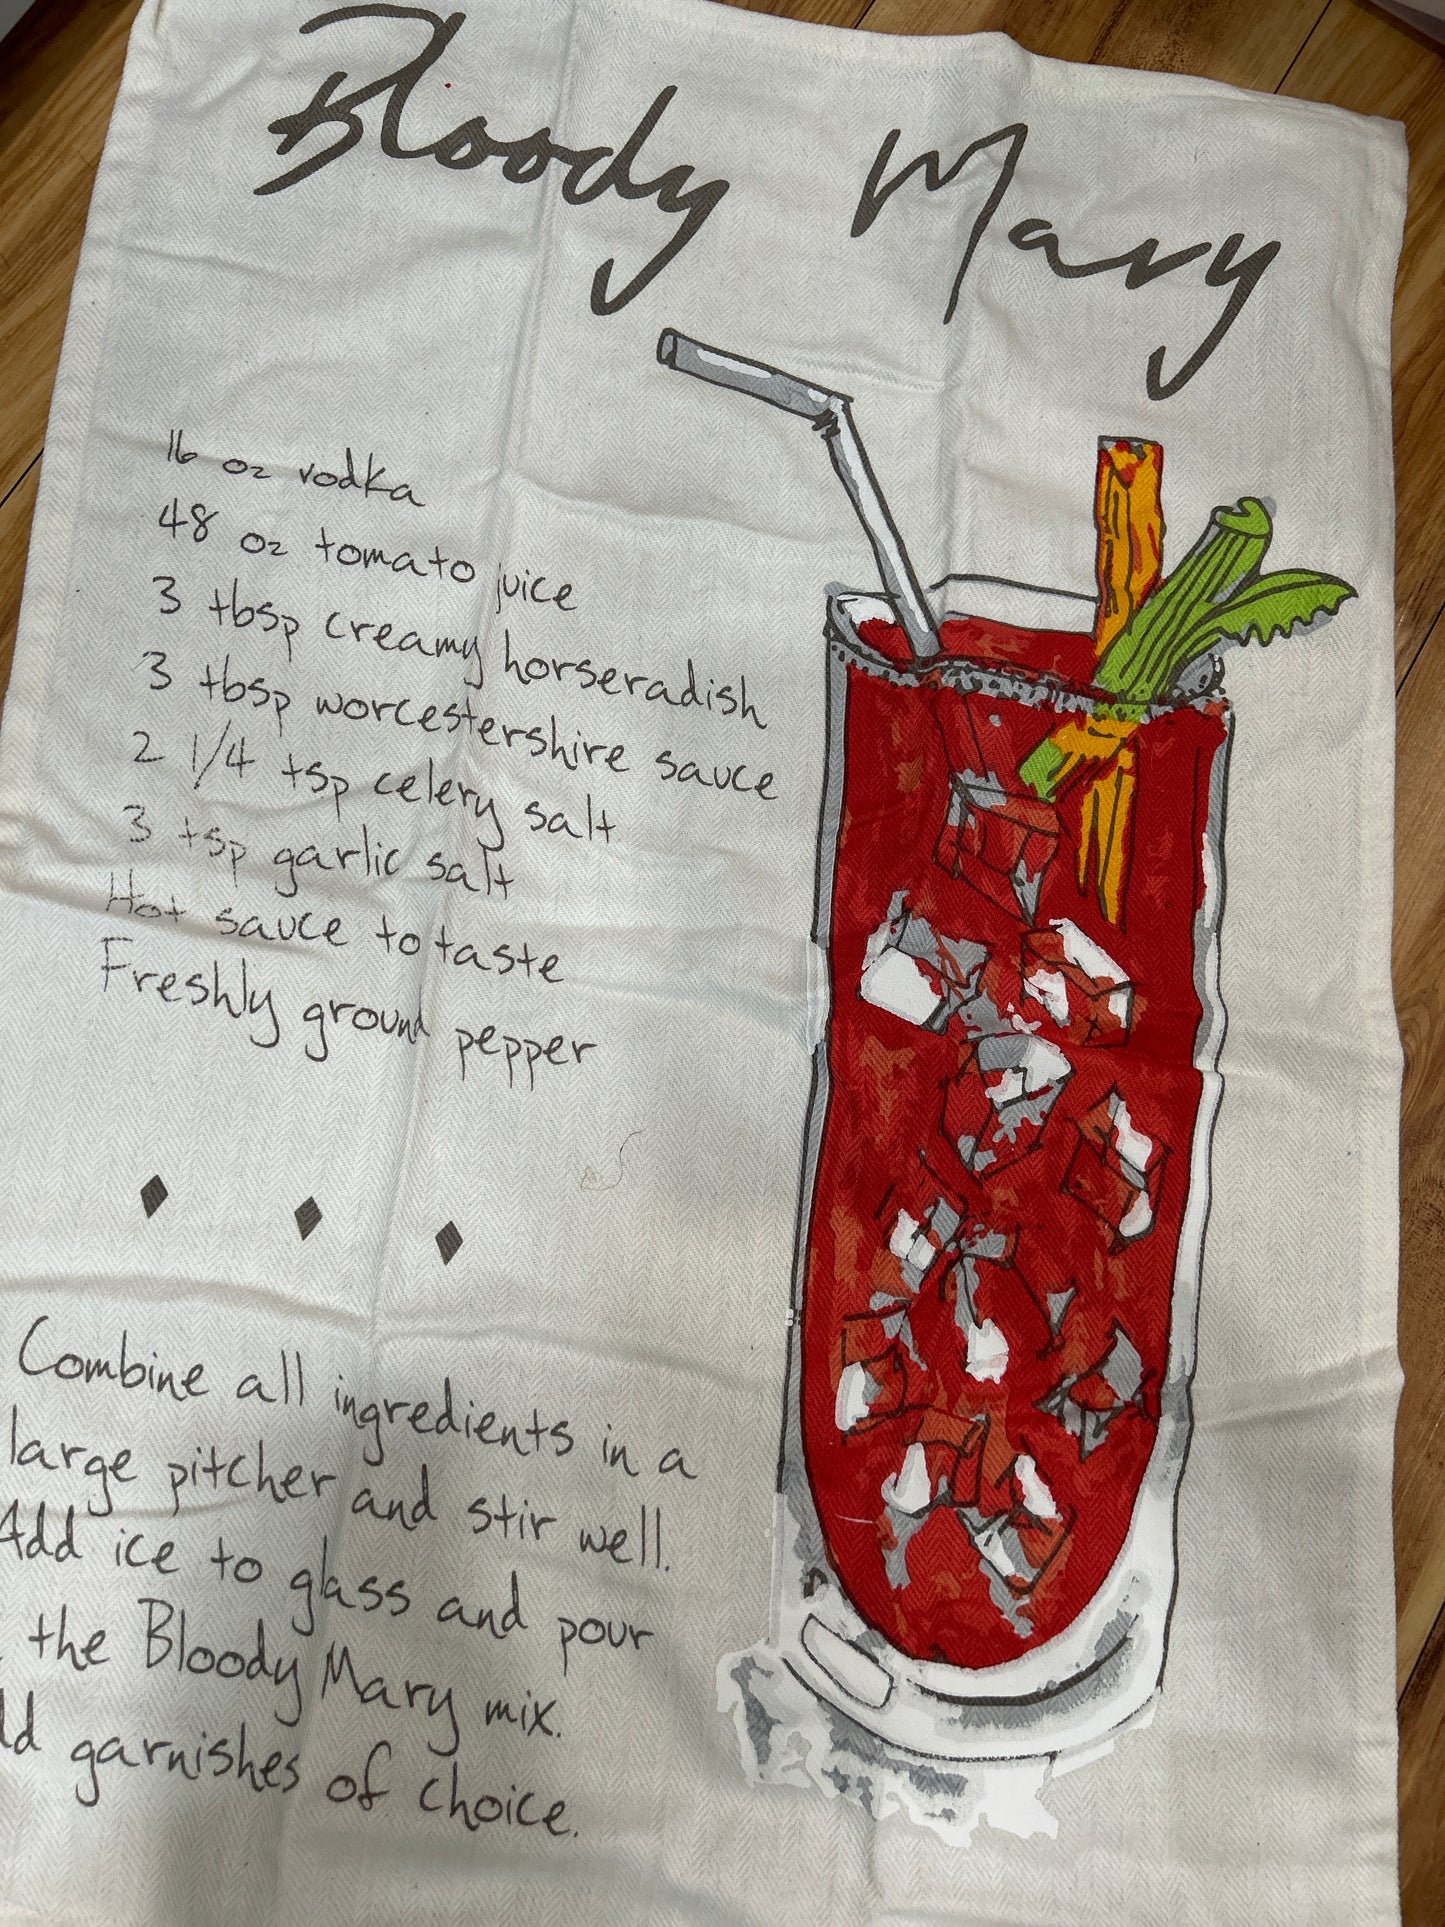 Bloody Mary
16 oz vodka
48 oz tomato juice
3 tbsp creamy horseradish
3 tbsp worcestershire sauce
2 1/4 tsp celery salt
3 tsp garlic salt
Hot sauce to taste
Freshly ground pepper
Combine all ingredients in a
large pitcher and stir well.
Add ice to glass and pour
the Bloody Mary mix.
garnishes of choice.